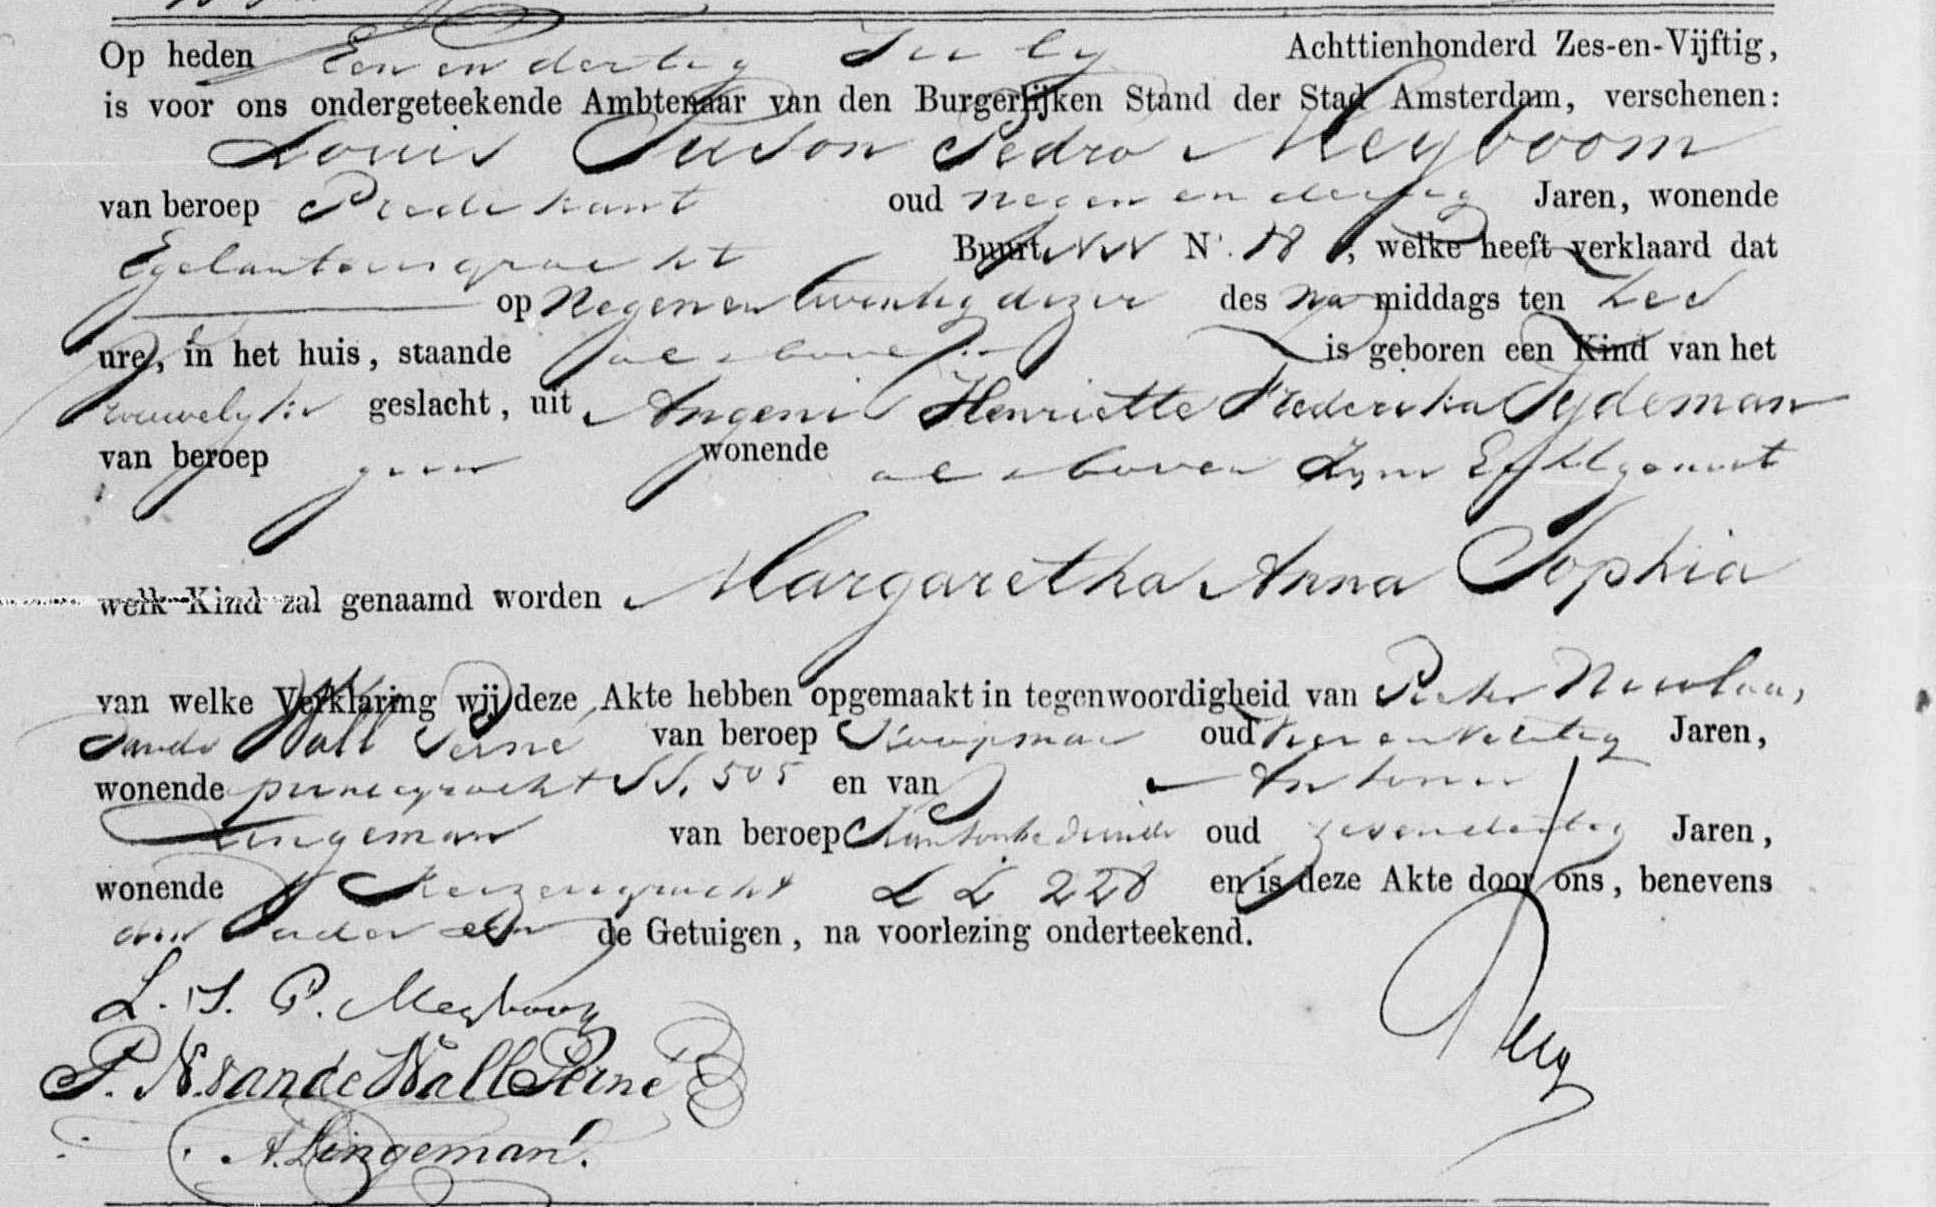 Op heden Een en dertig July Achttienhonderd Zes-en-Vijftig,
is voor ons ondergeteekende Ambtenaar van den Burgerlijken Stand der Stad Amsterdam, verschenen:
Louis Suson Pedro Meyboom
van beroep Predikant oud negen en dertig Jaren, wonende
Egelantiersgracht Buurt NN N. 18, welke heeft verklaard dat
op Negen en twintig dezer des na middags ten zes
ure, in het huis, staande als boven is geboren een Kind van het
vrouwelyke geslacht, uit Angeni Henriette Frederika Tydeman
van beroep geen wonende als boven zyne Echtgenoot
welk Kind zal genaamd worden Margaretha Anna Sophia
van welke Verklaring wij deze Akte hebben opgemaakt in tegenwoordigheid van Pieter Nicolaas
van de Wall Perné van beroep Koopman oud Jaren,
wonende prinsegracht SS. 505 en van Antonie
Lingeman van beroep Kantoorbediende oud zevendertig Jaren,
wonende Keizersgracht LL 228 en is deze Akte door ons, benevens
den Vader en de Getuigen, na voorlezing onderteekend.
L. S. P. Meyboom
P. N. van de Wall Perné
A. Lingeman